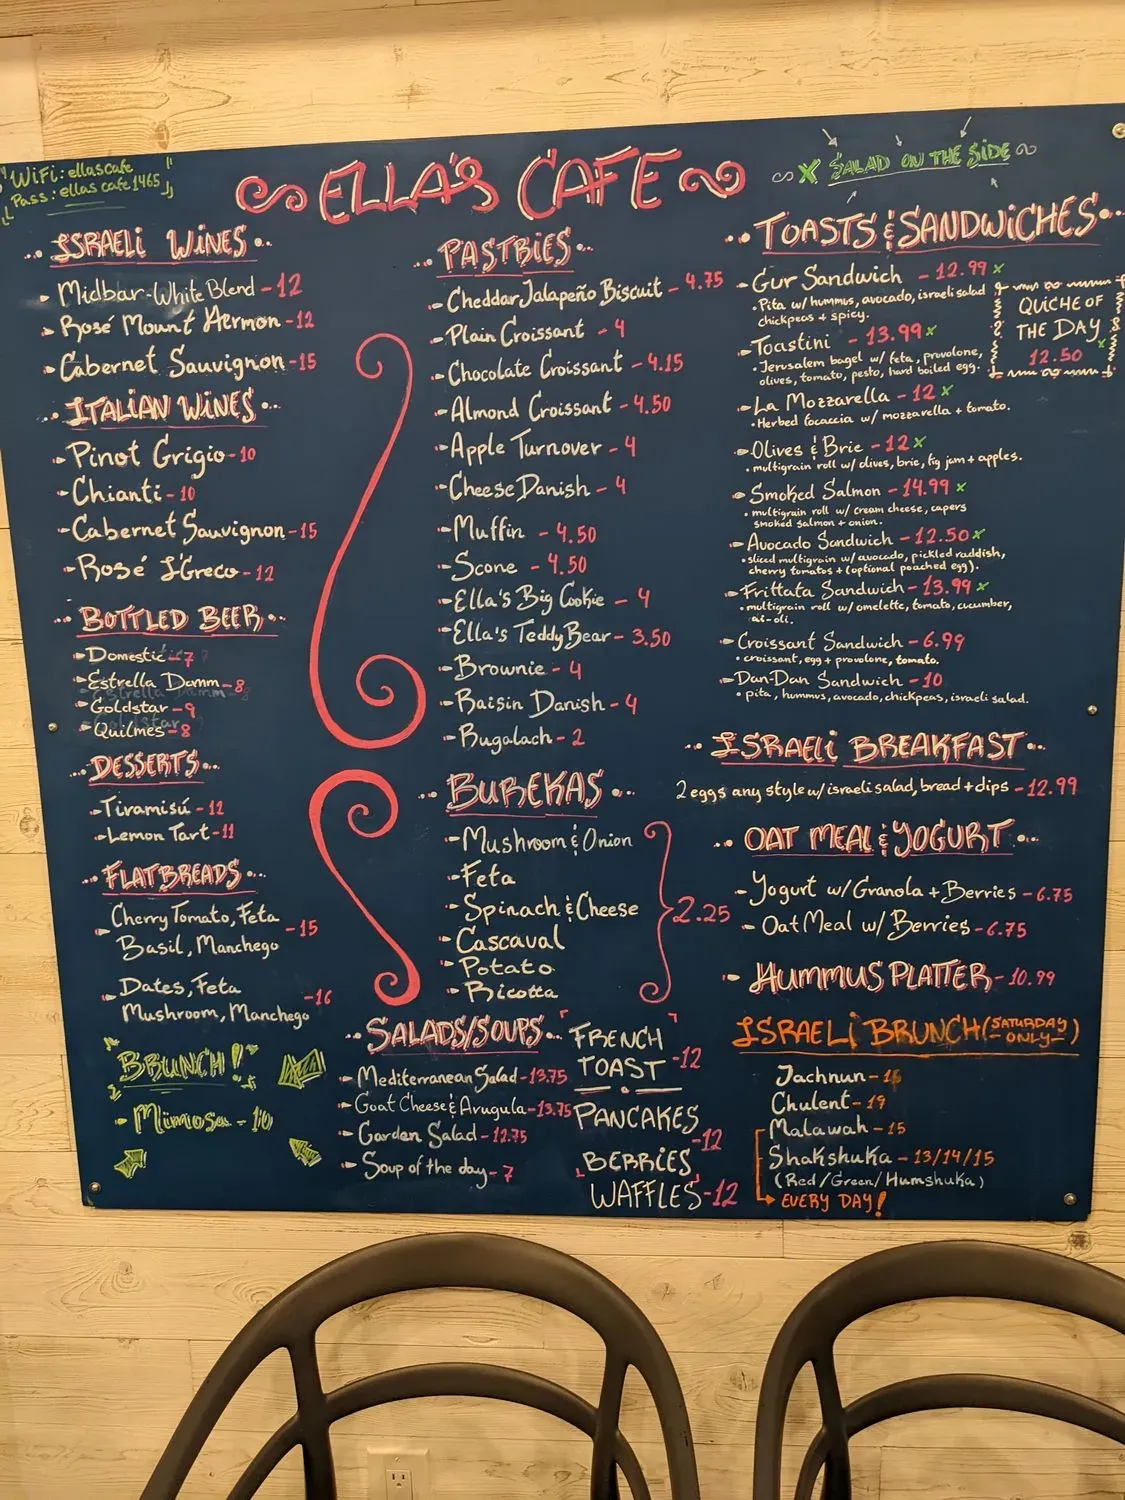 WiFi: ellascafe
Pass: ellas cafe1465
ELLA'S CAFE
X SALAD ON THE SIDE
ISRAELI WINES
Midbar-White Blend - 12
Rosé Mount Hermon - 12
Cabernet Sauvignon - 15
ITALIAN WINES
Pinot Grigio - 10
Chianti - 10
Cabernet Sauvignon - 15
Rosé I'Greco - 12
BOTTLED BEER
Domestic - 7
Estrella Damm - 8
Goldstar - 9
Quilmes - 8
DESSERTS
Tiramisú - 12
Lemon Tart - 11
FLATBREADS
Cherry Tomato, Feta
Basil, Manchego - 15
Dates, Feta
Mushroom, Manchego - 16
BRUNCH!
Mimosa - 10
PASTRIES
Cheddar Jalapeño Biscuit - 4.75
Plain Croissant - 4
Chocolate Croissant - 4.15
Almond Croissant - 4.50
Apple Turnover - 4
Cheese Danish - 4
Muffin - 4.50
Scone - 4.50
Ella's Big Cookie - 4
Ella's Teddy Bear - 3.50
Brownie - 4
Raisin Danish - 4
Rugalach - 2
BUREKAS
Mushroom & Onion
Feta
Spinach & Cheese
2.25
Cascaval
Potato
Ricotta
SALADS/SOUPS
Mediterranean Salad - 13.75
Goat Cheese & Arugula - 13.75
Garden Salad - 12.75
Soup of the day - 7
FRENCH
TOAST - 12
PANCAKES - 12
BERRIES
WAFFLES - 12
TOASTS & SANDWICHES
Gur Sandwich - 12.99 x
Pita w/ hummus, avocado, israeli salad
chickpeas + spicy.
Toastini - 13.99 x
Jerusalem bagel w/ feta, provolone,
olives, tomato, pesto, hard boiled egg.
La Mozzarella - 12 x
Herbed focaccia w/ mozzarella + tomato.
Olives & Brie - 12 x
multigrain roll w/ olives, brie, fig jam + apples.
Smoked Salmon - 14.99 x
multigrain roll w/ cream cheese, capers
smoked salmon + onion.
Avocado Sandwich - 12.50 x
sliced multigrain w/ avocado, pickled raddish,
cherry tomatos + (optional poached egg).
Frittata Sandwich - 13.99 x
multigrain roll w/ omelette, tomato, cucumber,
ai-oli.
Croissant Sandwich - 6.99
croissant, egg + provolone, tomato.
Dan-Dan Sandwich - 10
pita, hummus, avocado, chickpeas, israeli salad.
QUICHE OF
THE DAY
12.50 x
ISRAELI BREAKFAST
2 eggs any style w/ israeli salad, bread + dips - 12.99
OAT MEAL & YOGURT
Yogurt w/ Granola + Berries - 6.75
Oat Meal w/ Berries - 6.75
HUMMUS PLATTER - 10.99
ISRAELI BRUNCH (SATURDAY
ONLY)
Jachnun -
Chulent - 19
Malawah - 15
Shakshuka - 13/14/15
(Red/Green/Humshuka)
EVERY DAY!